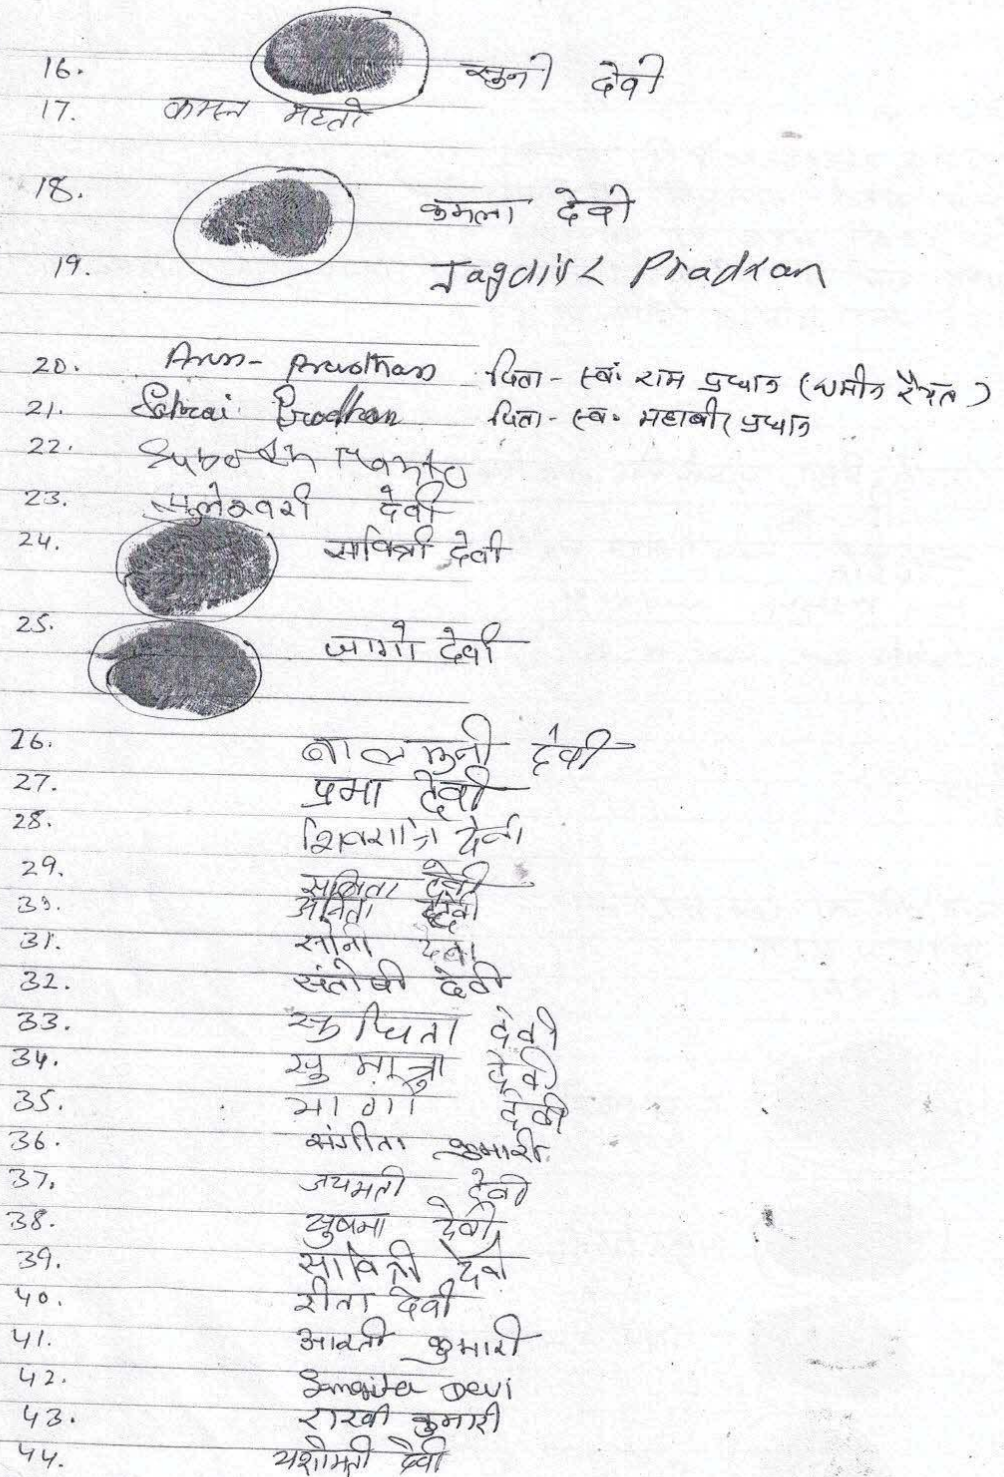 16. सुनी देवी
17. कमल महतो
18. कमला देवी
19. Jagdish Pradhan
20. Arun- Pradhan पिता - स्व० राम प्रधान (जमीन रैयत)
21. Sahrai Pradhan पिता - स्व० महाबीर प्रधान
22. Subodh Mahto
23. फुलेश्वरी देवी
24. सावित्री देवी
25. जागो देवी
26. बालमुनी देवी
27. प्रमा देवी
28. देवी
29. सविता देवी
30. अनिता देवी
31. सोनी देवी
32. संतोषी देवी
33. देवी
34. देवी
35. देवी
36. संगीता कुमारी
37. जयमती देवी
38. सुषमा देवी
39. सावित्री देवी
40. रीता देवी
41. आरती कुमारी
42. Sangita Devi
43. राखी कुमारी
44. यशोमती देवी